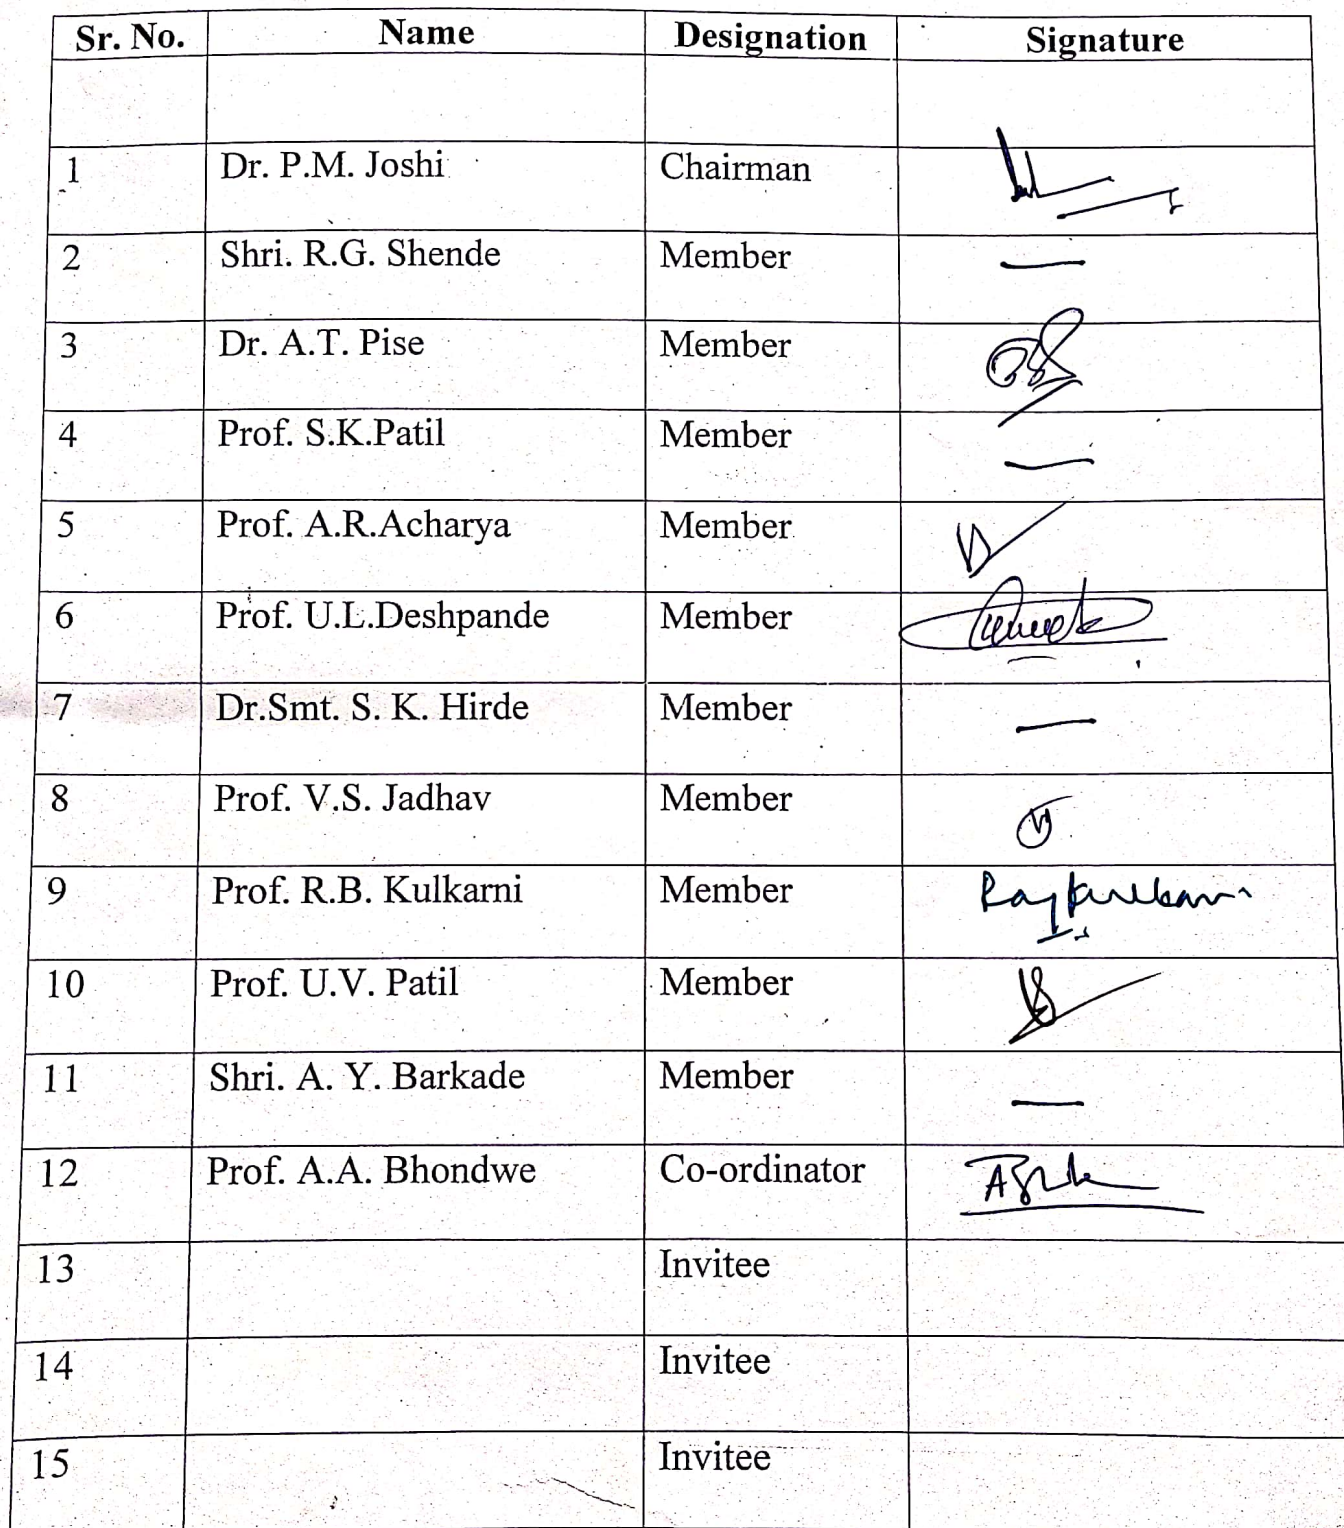 Sr. No. Name Designation Signature
1 Dr. P.M. Joshi Chairman
2 Shri. R.G. Shende Member —
3 Dr. A.T. Pise Member
4 Prof. S.K.Patil Member —
5 Prof. A.R.Acharya Member
6 Prof. U.L.Deshpande Member
7 Dr.Smt. S. K. Hirde Member —
8 Prof. V.S. Jadhav Member
9 Prof. R.B. Kulkarni Member
10 Prof. U.V. Patil Member
11 Shri. A. Y. Barkade Member —
12 Prof. A.A. Bhondwe Co-ordinator
13 Invitee
14 Invitee
15 Invitee